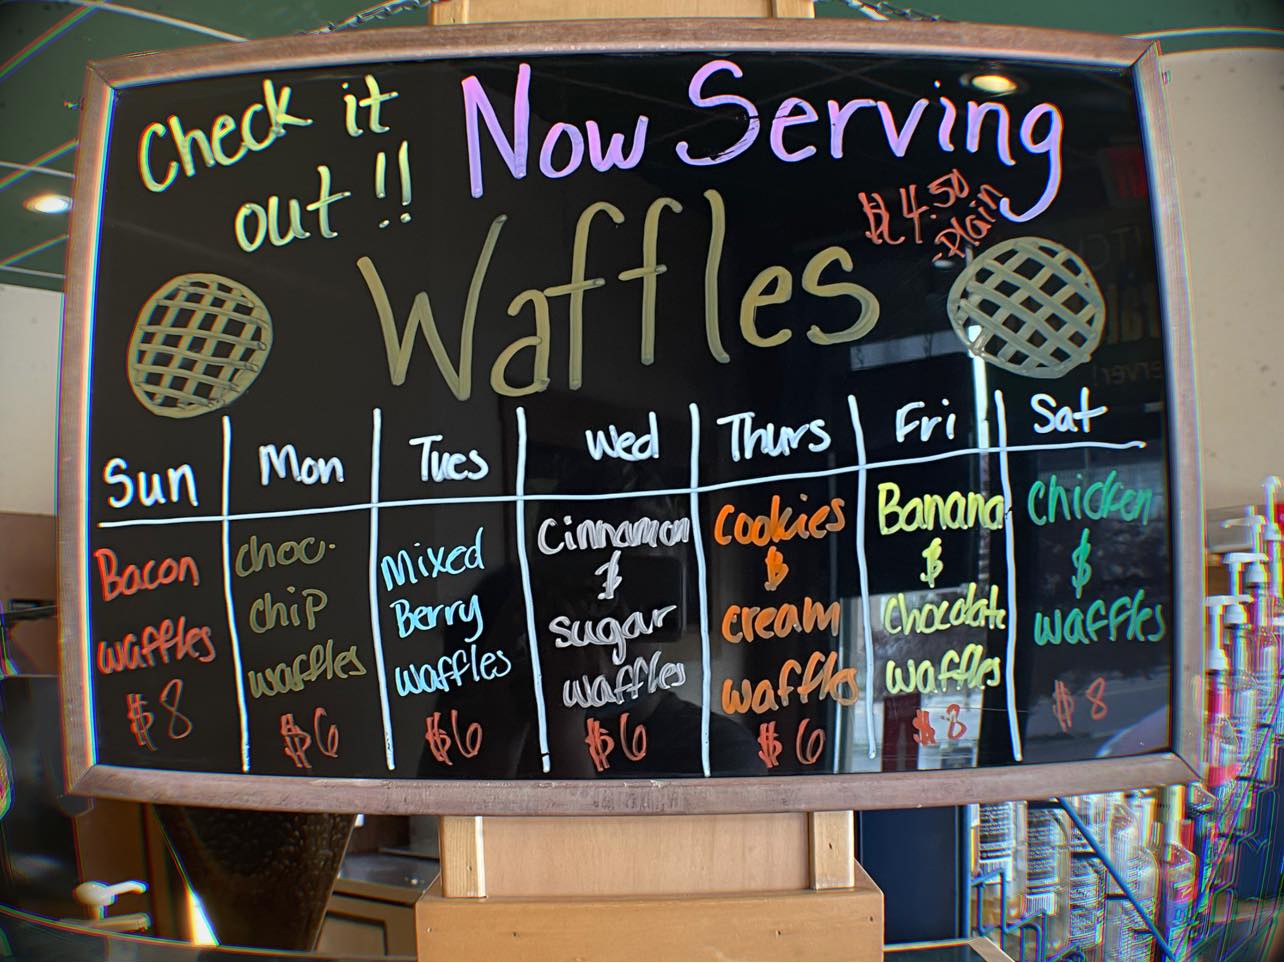 Check it
out!!
Now Serving
Waffles
$4.50
Plain
Sun
Bacon
waffles
$8
Mon
choc.
chip
waffles
$6
Tues
Mixed
Berry
waffles
$6
Wed
Cinnamon
&
sugar
waffles
$6
Thurs
Cookies
&
cream
waffles
$6
Fri
Banana
&
Chocolate
waffles
$8
Sat
Chicken
&
waffles
$8